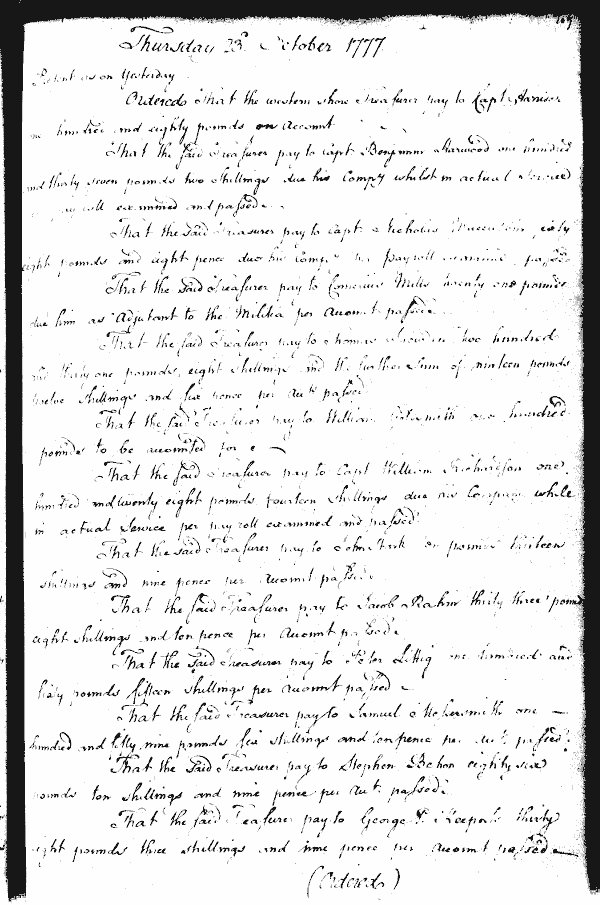 169
Thursday 23d. October 1777.
Present as on Yesterday
Ordered That the western shore Treasurer pay to Capt Harrison
one hundred and eighty pounds on Account
That the said Treasurer pay to Capt Benjamin Harwood one hundred
and thirty seven pounds two Shillings due his Compy whilst in actual Service
pay roll examined and passed.
That the said Treasurer pay to Capt Nicholas sixty
eight pounds and eight pence due his Comp per payroll examined passed
That the said Treasurer pay to Cornelius Mills twenty one pounds
due him as Adjutant to the Militia per Account passed.
That the said Treasurer pay to Thomas two hundred
and thirty one pounds, eight Shillings and the further Sum of nineteen pounds
twelve Shillings and six pence per Act. passed
That the said Treasurer pay to William Goldsmith one hundred
pounds to be accounted for
That the said Treasurer pay to Capt William Richardson one
hundred and twenty eight pounds fourteen Shillings due his Company while
in actual Service per pay roll examined and passed.
That the said Treasurer pay to John pounds thirteen
shillings and nine pence per Account passed.
That the said Treasurer pay to Jacob Rahm thirty three pounds
eight shillings and ten pence per Account passed.
That the said Treasurer pay to Peter Littig one hundred and
sixty pounds fifteen shillings per Account passed
That the said Treasurer pay to Samuel one
hundred and fifty nine pounds six shillings and ten pence per Act. passed.
That the said Treasurer pay to Stephen eighty six
pounds ten Shillings and nine pence per Act. passed.
That the said Treasurer pay to George P. Keeports thirty
eight pounds three shillings and nine pence per Account passed.
(Ordered)